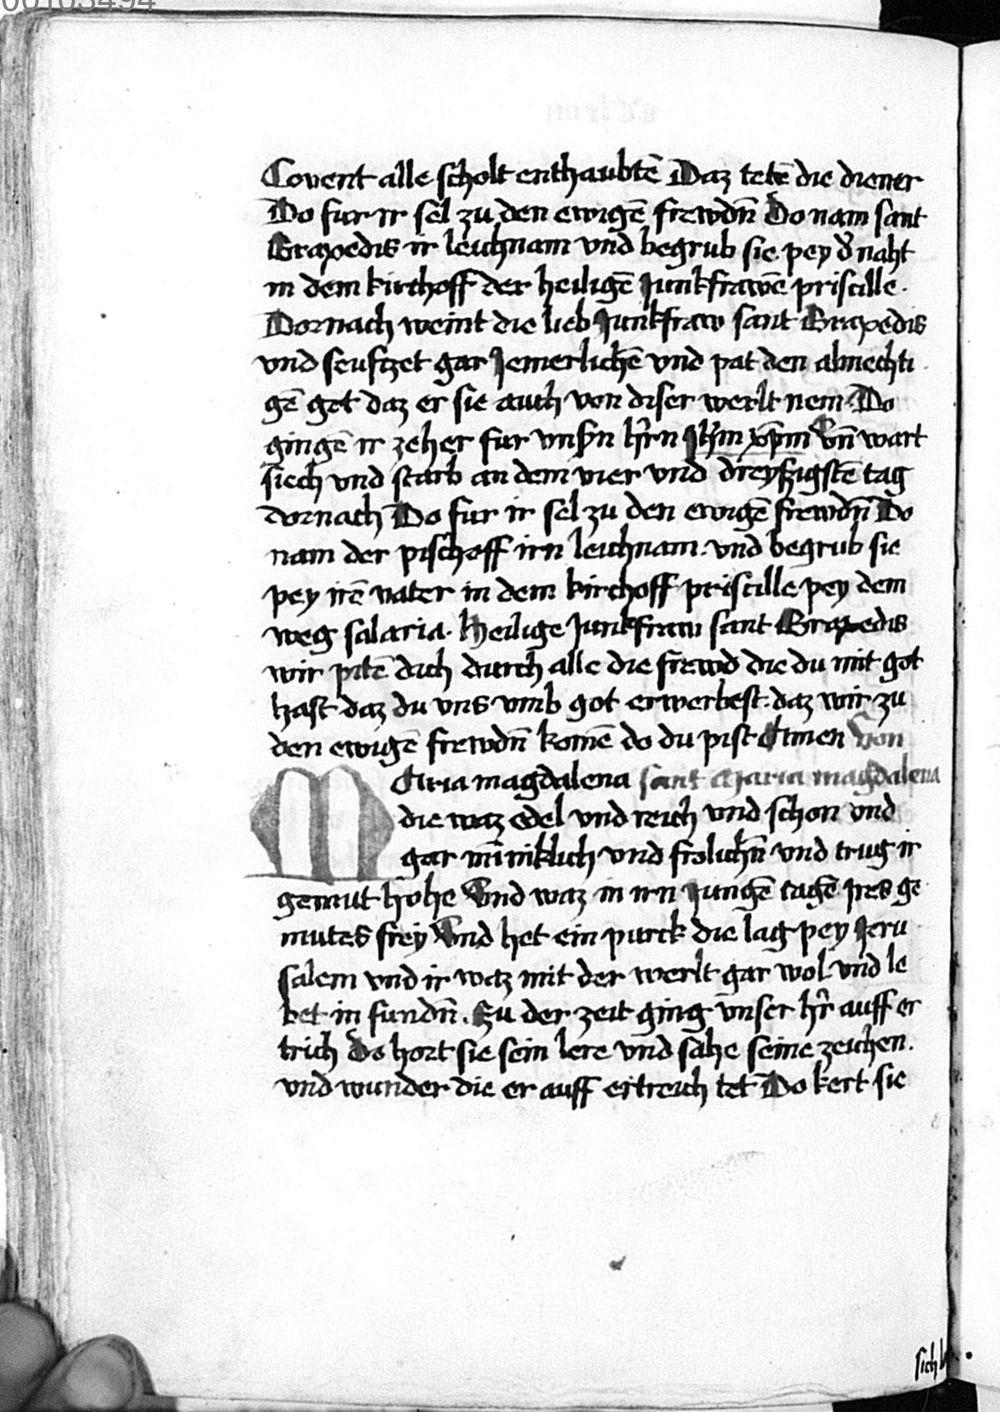 00103494
Covent alle scholt enthaubtē Daz tetē die diener
Do fur ir sel zu den ewigē frewdn̄ Do nam sant
Braxedis ir leichnam vnd begrub sie pey der naht
in dem kirchoff der heiligē Junkfrawē priscille.
Dornach weint die lieb Junkfraw sant Braxedis
vnd seufczet gar Jemerlichē vnd pat den almechti
gē got daz er sie auch von diser werlt nem Do
gingē ir zeher fur vnsn̄ hr̄rn Jhm̄ xpm̄ vn̄ wart
siech vnd starb an dem vier vnd dreyssigstē tag
dornach Do fur ir sel zu den ewigē frewdn̄ Do
nam der pischoff irn leichnam. vnd begrub sie
pey irē vater in dem kirchoff priscille pey dem
weg salaria. Heilige Junkfraw sant Braxedis
wir pitē dich durch alle die frewd die du mit got
hast daz du vns vmb got erwerbest. daz wir zu
den ewigē frewdn̄ komē do du pist Amen Von
Maria magdalena sant Maria magdalena
die waz edel vnd reich vnd schon vnd
gar mīniklich vnd frolichn̄ vnd trug ir
gemut hohe Vnd waz in irn Jungē tagē Jres ge
mutes frey Vnd het ein purck die lag pey Jeru
salem vnd ir waz mit der werlt gar wol vnd le
bet in sundn̄. Zu der zeit ging vnser hr̄ auff er
trich Do hort sie sein lere vnd sahe seine zeichen.
vnd wunder die er auff ertreich tet Do kert sie
sich